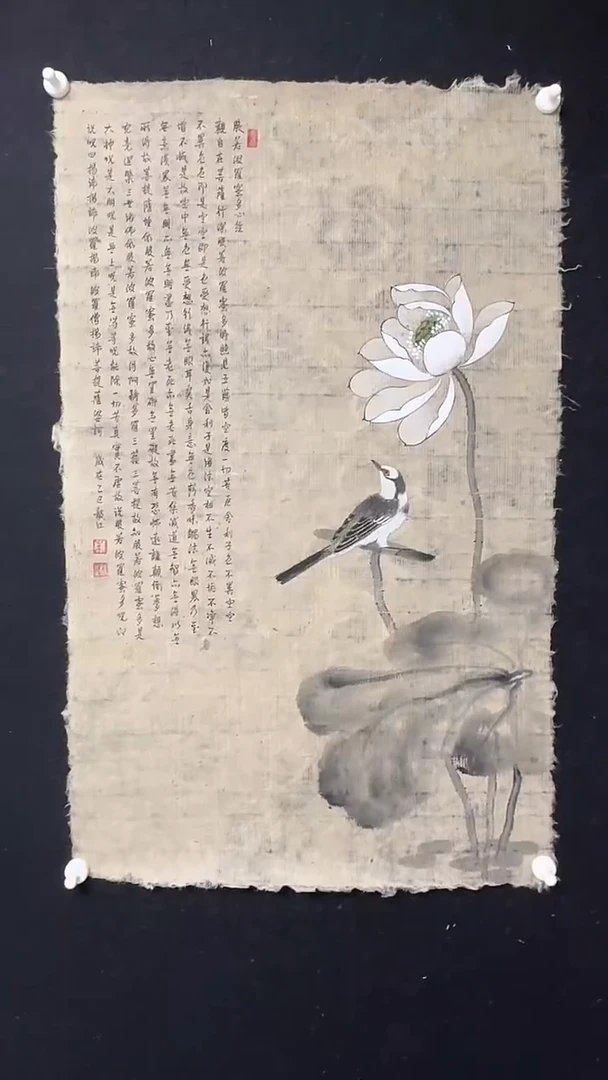 般若波羅蜜多心經
觀自在菩薩行深般若波羅蜜多時照見五蘊皆空度一切苦厄舍利子色不異空空
不異色色即是空空即是色受想行識亦復如是舍利子是諸法空相不生不滅不垢不淨不
增不減是故空中無色無受想行識無眼耳鼻舌身意無色聲香味觸法無眼界乃至
無意識界無無明亦無無明盡乃至無老死亦無老死盡無苦集滅道無智亦無得以無
所得故菩提薩埵依般若波羅蜜多故心無罣礙無罣礙故無有恐怖遠離顛倒夢想
究竟涅槃三世諸佛依般若波羅蜜多故得阿耨多羅三藐三菩提故知般若波羅蜜多是
大神咒是大明咒是無上咒是無等等咒能除一切苦真實不虛故說般若波羅蜜多咒即
說咒曰揭諦揭諦波羅揭諦波羅僧揭諦菩提薩婆訶 歲在乙巳